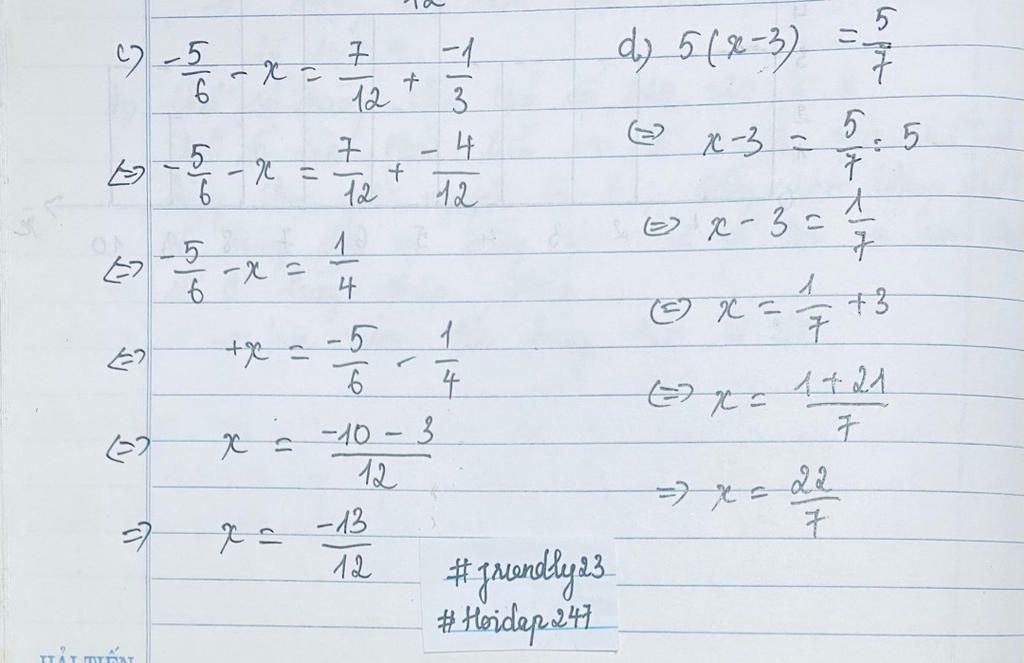 12
c) -5/6 - x = 7/12 + -1/3
⇔ -5/6 - x = 7/12 + -4/12
⇔ -5/6 - x = 1/4
⇔ +x = -5/6 - 1/4
⇔ x = -10 - 3/12
⇒ x = -13/12
d) 5(x-3) = 5/7
⇔ x-3 = 5/7 : 5
⇔ x - 3 = 1/7
⇔ x = 1/7 + 3
⇔ x = 1 + 21/7
⇒ x = 22/7
#friendly23
#Hoidap247
HẢI TIẾN